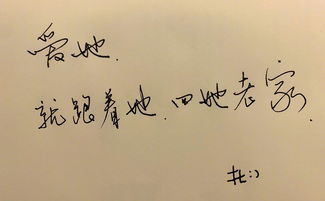 爱她.
就跟着她.回她老家.